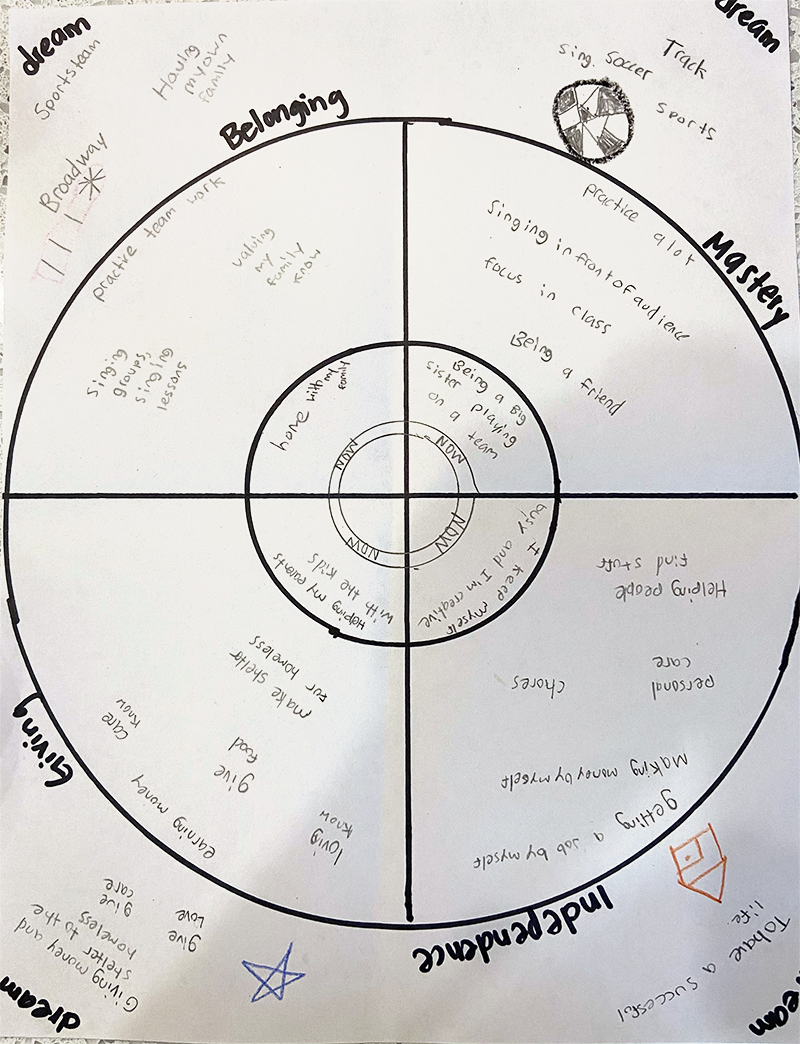 dream
Sports team
Having
my own
family
Broadway
Belonging
practice team work
valuing
my
family
know
singing
groups,
singing
lessons
home with my
family
NOW
dream
sing. Soccer
Track
sports
Mastery
practice a lot
Singing in front of audience
focus in class
Being a friend
Being a Big
sister playing
on a team
NOW
Independence
I keep myself
busy and I'm creative
NOW
Helping people
find stuff
personal
care
chores
Making money by myself
getting a job by myself
To have a succesful
life.
dream
Giving
Helping my parents
with the kids
NOW
make shelter
for homeless
care
know
give
food
earning money
loving
know
give
love
give
care
Giving money and
shelter to the
homeless
dream